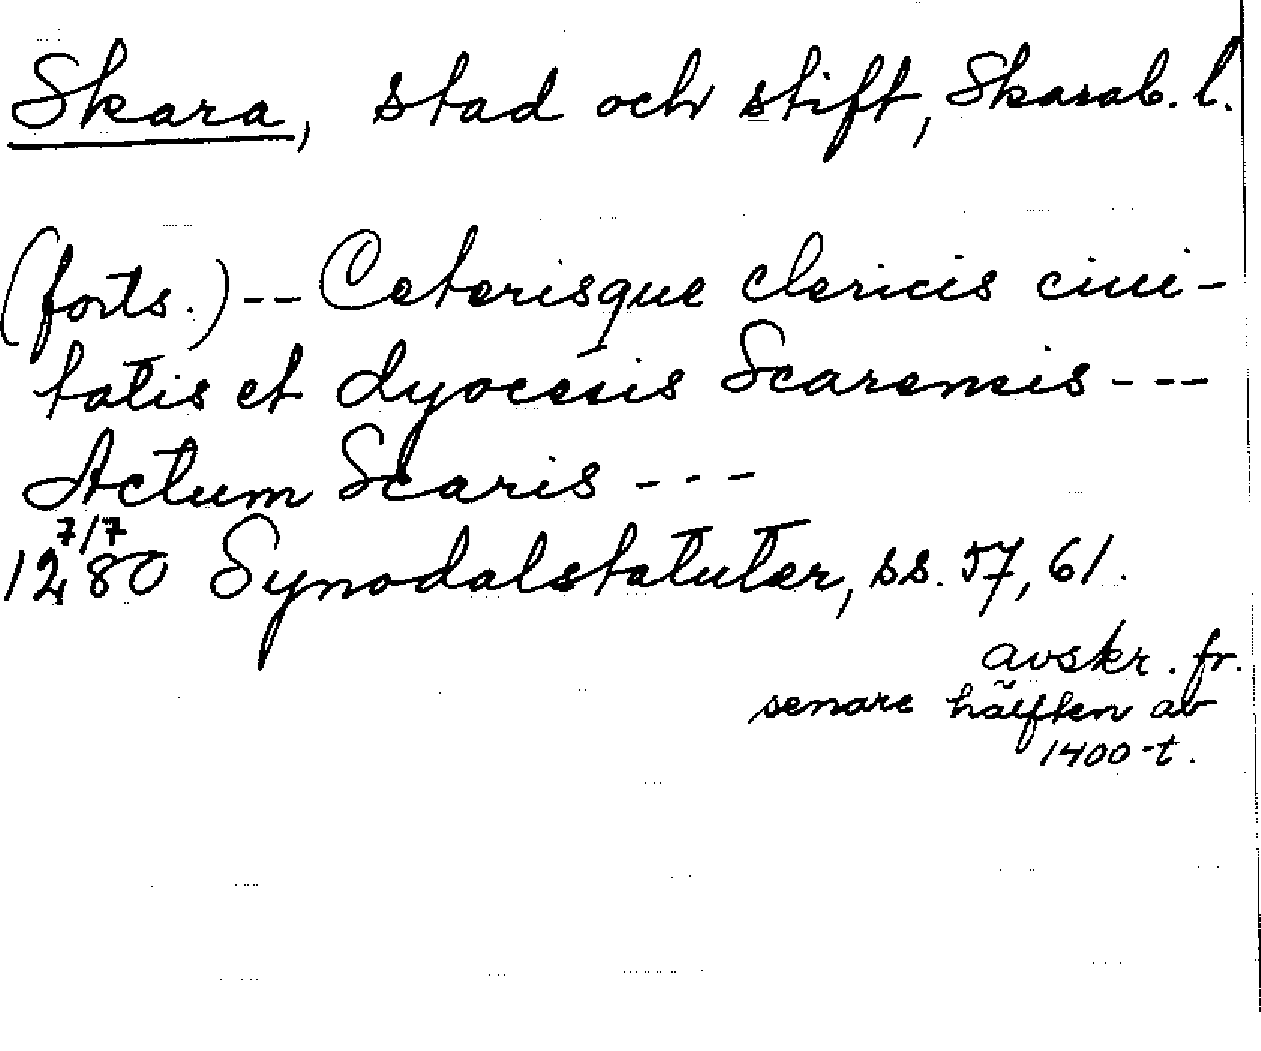 Skara, stad och stift, Skarab. l.
(forts.) -- Ceterisque clericis ciui-
tatis et dyocesis Scarensis ---
Actum Scaris ---
7/7
1280 Synodalstatuter, ss. 57, 61.
avskr. fr.
senare hälften av
1400-t.